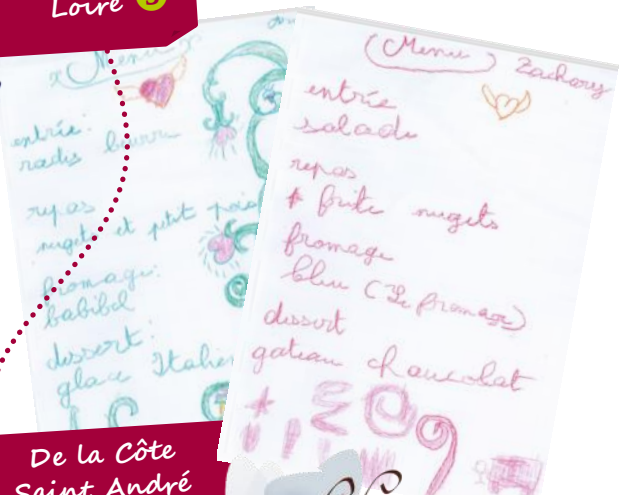 Loire 3
Menu
entrée:
radis beurre
repas
nugets et petit pois
fromage:
babibel
dessert:
glace Italien
Menu Zachary
entrée
salade
repas
frite nugets
fromage
bleu (Le fromage)
dessert
gateau chaucolat
De la Côte
Saint André